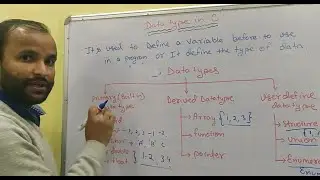 Data type in C
It is used to Define a variable before to use
in a program Or It define the type of data
→ Data types
Primary (Built in)
datatype
Derived Datatype
User define
datatype
→ Array {1,2,3}
→ function
→ pointer
→ Structure
→ Union
→ Enumer
1, 2, 3 -1 -2
float { 1.2, 3.4